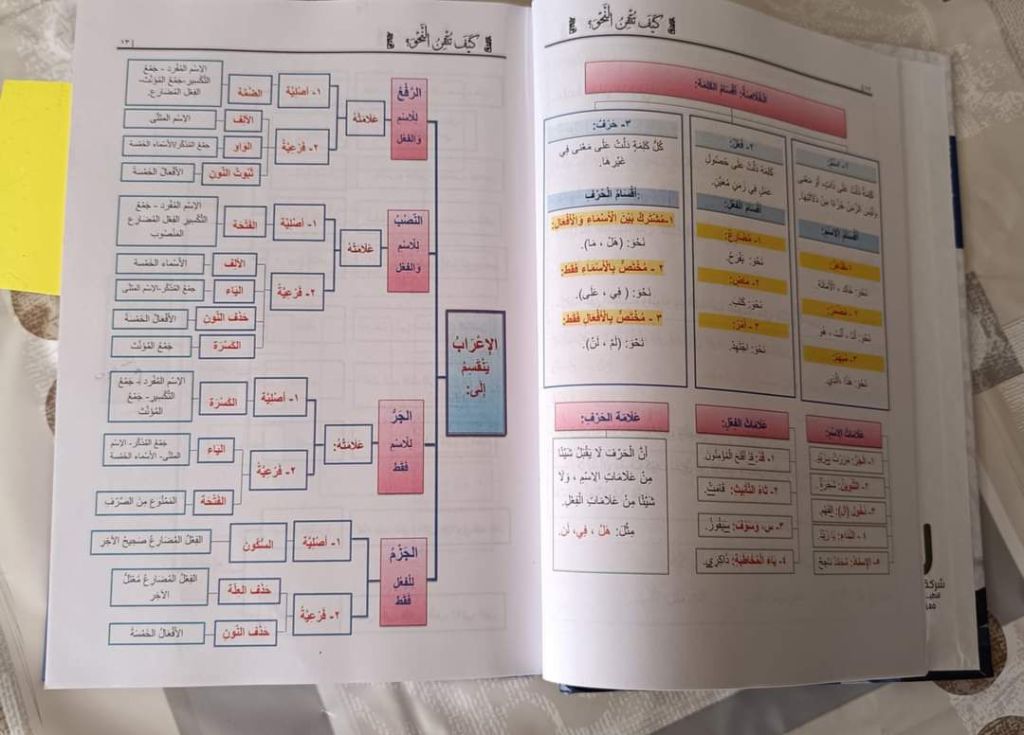 كَيْفَ تُتْقِنُ النَّحْوَ؟
الخُلاصَةُ: أَقْسَامُ الكَلِمَةِ:
١- اسْمٌ:
كَلِمَةٌ دَلَّتْ عَلَى ذَاتٍ، أَوْ مَعْنًى
وَلَيْسَ الزَّمَنُ جُزْءًا مِنْ دَلَالَتِهَا.
أَقْسَامُ الاِسْمِ:
١- ظَاهِرٌ:
نَحْوَ: خَالِد ، الأَمَانَة.
٢- مُضْمَرٌ:
نَحْوَ: أَنَا ، أَنْتَ ، هُوَ
٣- مُبْهَمٌ:
نَحْوَ: هَذَا ، الَّذِي.
٢- فِعْلٌ:
كَلِمَةٌ دَلَّتْ عَلَى حُصُولِ
عَمَلٍ فِي زَمَنٍ مُعَيَّنٍ.
أَقْسَامُ الفِعْلِ:
١- مُضَارِعٌ:
نَحْوَ: يَفْرَحُ.
٢- مَاضٍ:
نَحْوَ: كَتَبَ.
٣- أَمْرٌ:
نَحْوَ: اجْتَهِدْ.
٣- حَرْفٌ:
كُلُّ كَلِمَةٍ دَلَّتْ عَلَى مَعْنًى فِي
غَيْرِهَا.
أَقْسَامُ الْحَرْفِ:
١-مُشْتَرَكٌ بَيْنَ الْأَسْمَاءِ وَالْأَفْعَالِ:
نَحْوَ: (هَلْ ، مَا).
٢- مُخْتَصٌّ بِالْأَسْمَاءِ فَقَطْ:
نَحْوَ: ( فِي ، عَلَى).
٣- مُخْتَصٌّ بِالْأَفْعَالِ فَقَطْ:
نَحْوَ: (لَمْ ، لَنْ).
عَلَامَاتُ الاِسْمِ:
١- الجَرُّ: مَرَرْتُ بِزَيْدٍ.
٢- التَّنْوِينُ: شَجَرَةٌ
٣- دُخُولُ (ال): الفَهْم.
٤- النِّدَاءُ: يَا زَيْدُ
٥- الإِسْنَادُ: مُحَمَّدٌ
عَلَامَاتُ الفِعْلِ:
١- قَدْ: قَدْ أَفْلَحَ الْمُؤْمِنُونَ.
٢- تَاءُ التَّأْنِيثِ: قَامَتْ.
٣- س، وَسَوْفَ: سَيَفُوزُ.
٤- يَاءُ الْمُخَاطَبَةِ: ذَاكِرِي.
عَلَامَةُ الحَرْفِ:
أَنَّ الْحَرْفَ لَا يَقْبَلُ شَيْئًا
مِنْ عَلَامَاتِ الاِسْمِ ، وَلَا
شَيْئًا مِنْ عَلَامَاتِ الْفِعْلِ.
مِثْلُ: هَلْ ، فِي، لَنْ.
شركة
كَيْفَ تُتْقِنُ النَّحْوَ؟
١٣
الإِعْرَابُ
يَنْقَسِمُ
إِلَى:
الرَّفْعُ
لِلاسْمِ
وَالفِعْلِ
عَلَامَتُهُ
١- أَصْلِيَّة
الضَّمَّة
الاِسْم المُفْرَد - جَمْعُ
التَّكْسِير-جَمْعُ المُؤَنَّث-
الفِعْل المُضَارِع.
٢- فَرْعِيَّةٌ
الأَلِف
الاِسْم المثَنَّى
الوَاو
جَمْعُ المُذَكَّر/الأَسْماء الخَمْسة
ثُبُوتُ النُّونِ
الأَفْعَال الخَمْسة
النَّصْبُ
لِلاسْمِ
وَالفِعْل
عَلَامَتُهُ
١- أَصْلِيَّة
الفَتْحَة
الاِسْم المُفْرَد - جَمْعُ
التَّكْسِير الفِعْل المُضَارِع
المَنْصُوب
٢- فَرْعِيَّة
الأَلِف
الأَسْمَاء الخَمْسة
اليَاء
جَمْعُ المُذَكَّر-الاِسْم المُثَنَّى
حَذْف النُّون
الأَفْعَال الخَمْسَة
الكَسْرَة
جَمْعُ المُؤَنَّث
الجَرُّ
لِلاسْمِ
فَقَط
عَلَامَتُهُ:
١- أَصْلِيَّة
الكَسْرَة
الاِسْم المُفْرَد - جَمْعُ
التَّكْسِير- جَمْعُ
المُؤَنَّث
٢- فَرْعِيَّةٌ
اليَاء
جَمْعُ المُذَكَّر- الاِسْم
المثَنَّى- الأَسْماء الخَمْسة
الفَتْحَة
المَمْنُوع مِنَ الصَّرْف
الجَزْمُ
لِلْفِعْل
فَقَط
١- أَصْلِيَّة
السُّكُون
الفِعْلُ المُضَارِعُ صَحِيحُ الآخِر
٢- فَرْعِيَّةٌ
حَذْف العِلَّة
الفِعْلُ المُضَارِعُ مُعْتَلُّ
الآخِر
حَذْف النُّونِ
الأَفْعَالُ الخَمْسَةُ